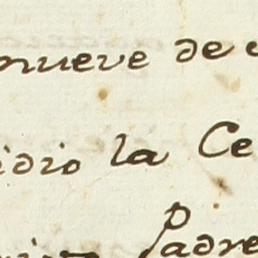 nueve de
idio la Ce
Padre